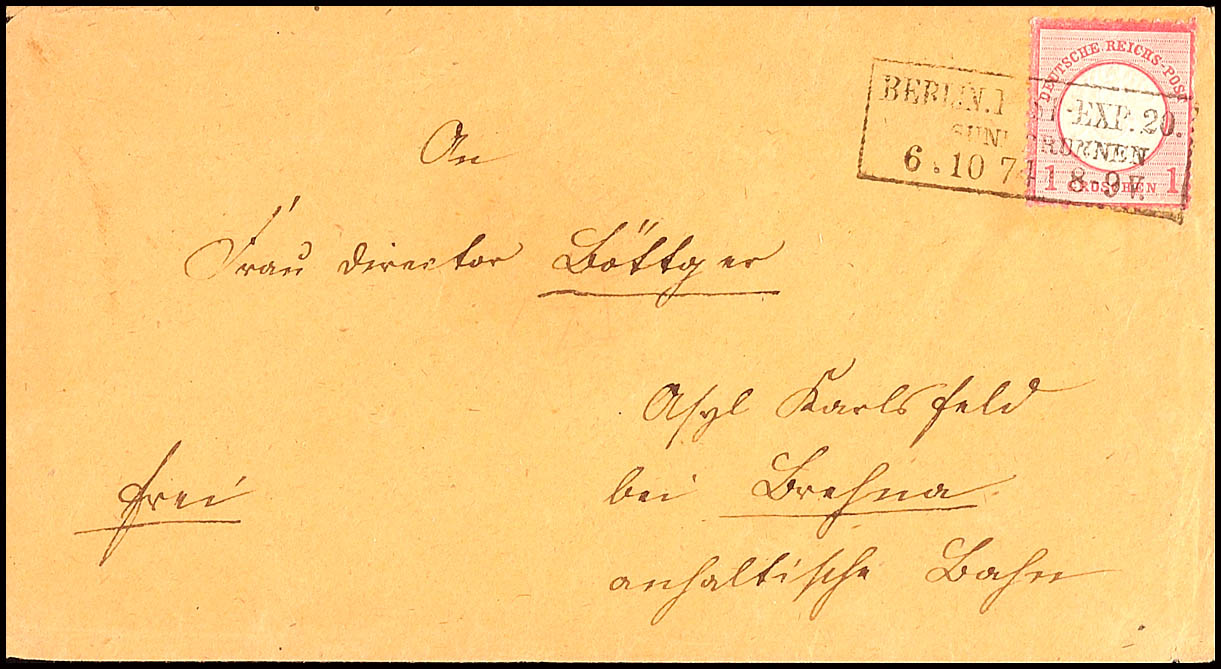 DEUTSCHE REICHS-POST
1 GROSCHEN 1
BERLIN. EXP. 20.
6.10 74 8-9 V.
An
Frau Director Böttger
Asyl Karlsfeld
bei Brehna
anhaltische Bahn
frei